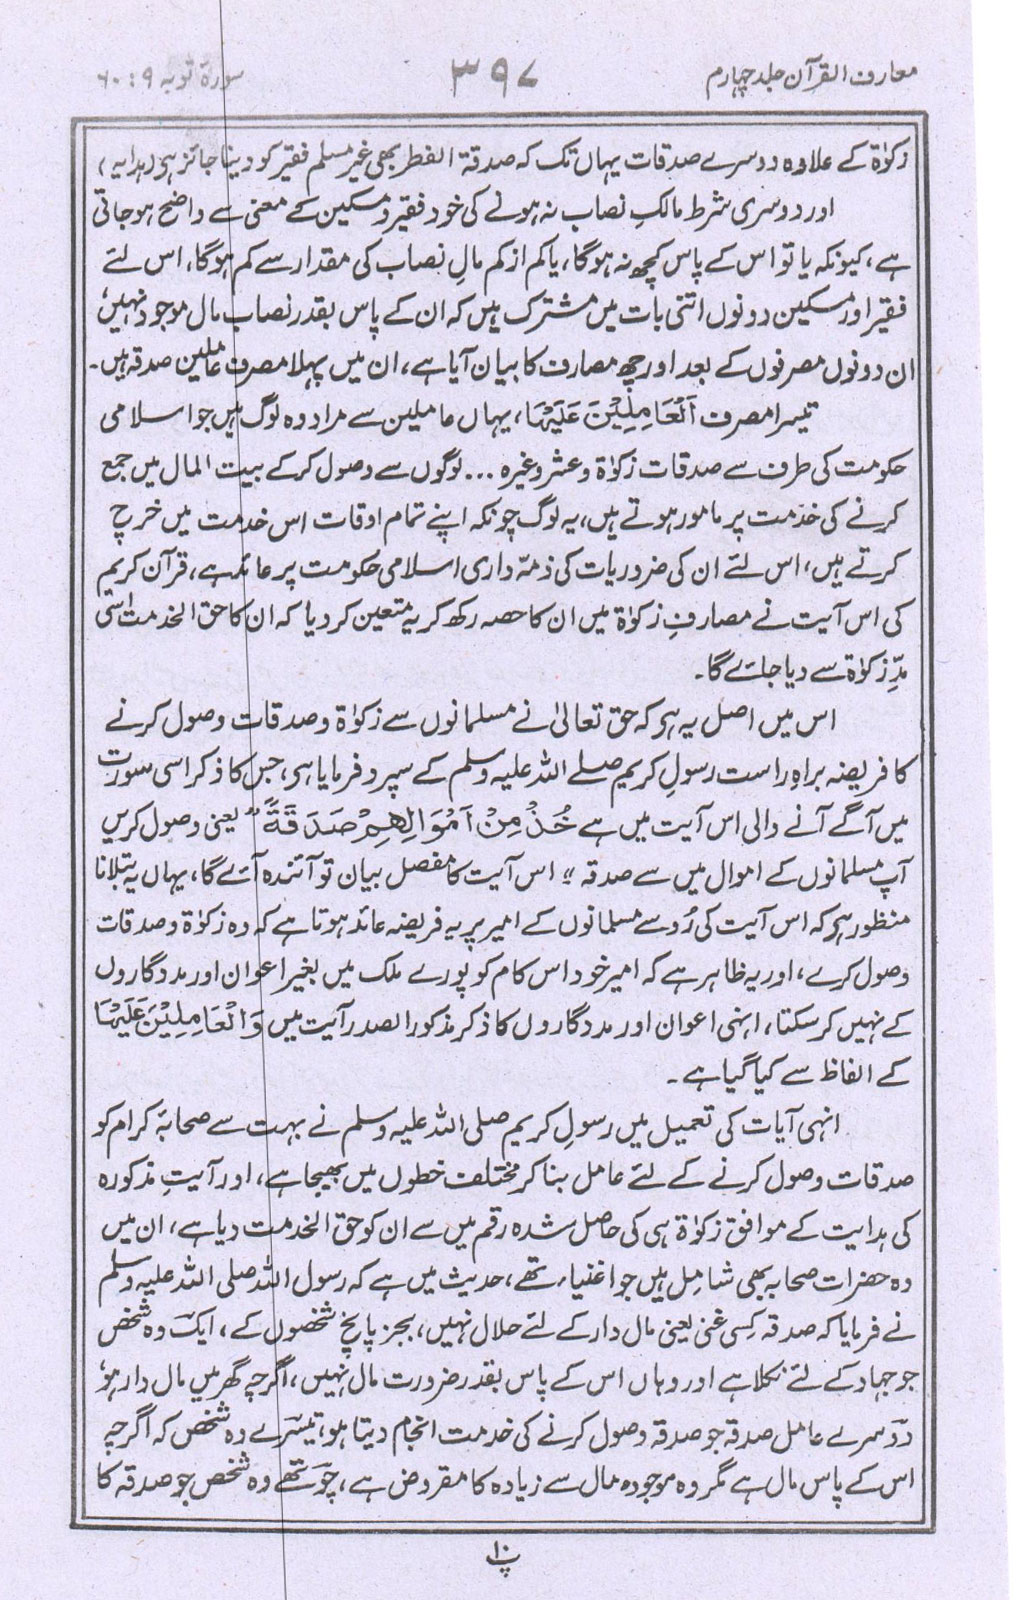 معارف القرآن جلد چہارم
۳۹۷
سورۂ توبہ ۹ : ۶۰
زکوٰۃ کے علاوہ دوسرے صدقات یہاں تک کہ صدقۃ الفطر بھی غیر مسلم فقیر کو دینا جائز ہی (ہدایہ)
اور دوسری شرط مالکِ نصاب نہ ہونے کی خود فقیر و مسکین کے معنی سے واضح ہو جاتی
ہے، کیونکہ یا تو اس کے پاس کچھ نہ ہوگا، یا کم از کم مالِ نصاب کی مقدار سے کم ہوگا، اس لئے
فقیر اور مسکین دونوں اتنی بات میں مشترک ہیں کہ ان کے پاس بقدر نصاب مال موجود نہیں،
ان دونوں مصرفوں کے بعد اور چھ مصارف کا بیان آیا ہے، ان میں پہلا مصرف عاملین صدقہ ہیں۔
تیسرا مصرف اَلْعَامِلِیْنَ عَلَیْہَا، یہاں عاملین سے مراد وہ لوگ ہیں جو اسلامی
حکومت کی طرف سے صدقات زکوٰۃ و عشر وغیرہ ... لوگوں سے وصول کر کے بیت المال میں جمع
کرنے کی خدمت پر مامور ہوتے ہیں، یہ لوگ چونکہ اپنے تمام اوقات اس خدمت میں خرچ
کرتے ہیں، اس لئے ان کی ضروریات کی ذمّہ داری اسلامی حکومت پر عائد ہے، قرآن کریم
کی اس آیت نے مصارفِ زکوٰۃ میں ان کا حصہ رکھ کر یہ متعین کر دیا کہ ان کا حق الخدمت اسی
مدِّ زکوٰۃ سے دیا جائے گا۔
اس میں اصل یہ ہو کہ حق تعالیٰ نے مسلمانوں سے زکوٰۃ و صدقات وصول کرنے
کا فریضہ براہِ راست رسولِ کریم صلے اللہ علیہ وسلم کے سپرد فرمایا ہی، جس کا ذکر اسی سورت
میں آگے آنے والی اس آیت میں ہے خُذْ مِنْ اَمْوَالِهِمْ صَدَقَةً " یعنی وصول کریں
آپ مسلمانوں کے اموال میں سے صدقہ " اس آیت کا مفصل بیان تو آئندہ آئے گا، یہاں یہ بتلانا
منظور ہو کہ اس آیت کی رُو سے مسلمانوں کے امیر پر یہ فریضہ عائد ہوتا ہے کہ وہ زکوٰۃ و صدقات
وصول کرے، اور یہ ظاہر ہے کہ امیر خود اس کام کو پورے ملک میں بغیر اعوان اور مددگاروں
کے نہیں کر سکتا، انہی اعوان اور مددگاروں کا ذکر مذکور الصدر آیت میں وَالْعَامِلِیْنَ عَلَیْہَا
کے الفاظ سے کیا گیا ہے۔
انہی آیات کی تعمیل میں رسولِ کریم صلی اللہ علیہ وسلم نے بہت سے صحابۂ کرام کو
صدقات وصول کرنے کے لئے عامل بنا کر مختلف خطوں میں بھیجا ہے، اور آیتِ مذکورہ
کی ہدایت کے موافق زکوٰۃ ہی کی حاصل شدہ رقم میں سے ان کو حق الخدمت دیا ہے، ان میں
وہ حضرات صحابہ بھی شامل ہیں جو اغنیاء تھے، حدیث میں ہے کہ رسول اللہ صلی اللہ علیہ وسلم
نے فرمایا کہ صدقہ کِسی غنی یعنی مال دار کے لئے حلال نہیں، بجز پانچ شخصوں کے، ایک وہ شخص
جو جہاد کے لئے نکلا ہے اور وہاں اس کے پاس بقدر ضرورت مال نہیں، اگرچہ گھر میں مال دار ہو،
دوسرے عامل صدقہ جو صدقہ وصول کرنے کی خدمت انجام دیتا ہو، تیسرے وہ شخص کہ اگرچہ
اس کے پاس مال ہے مگر وہ موجودہ مال سے زیادہ کا مقروض ہے، چوتھے وہ شخص جو صدقہ کا
پ۱۰